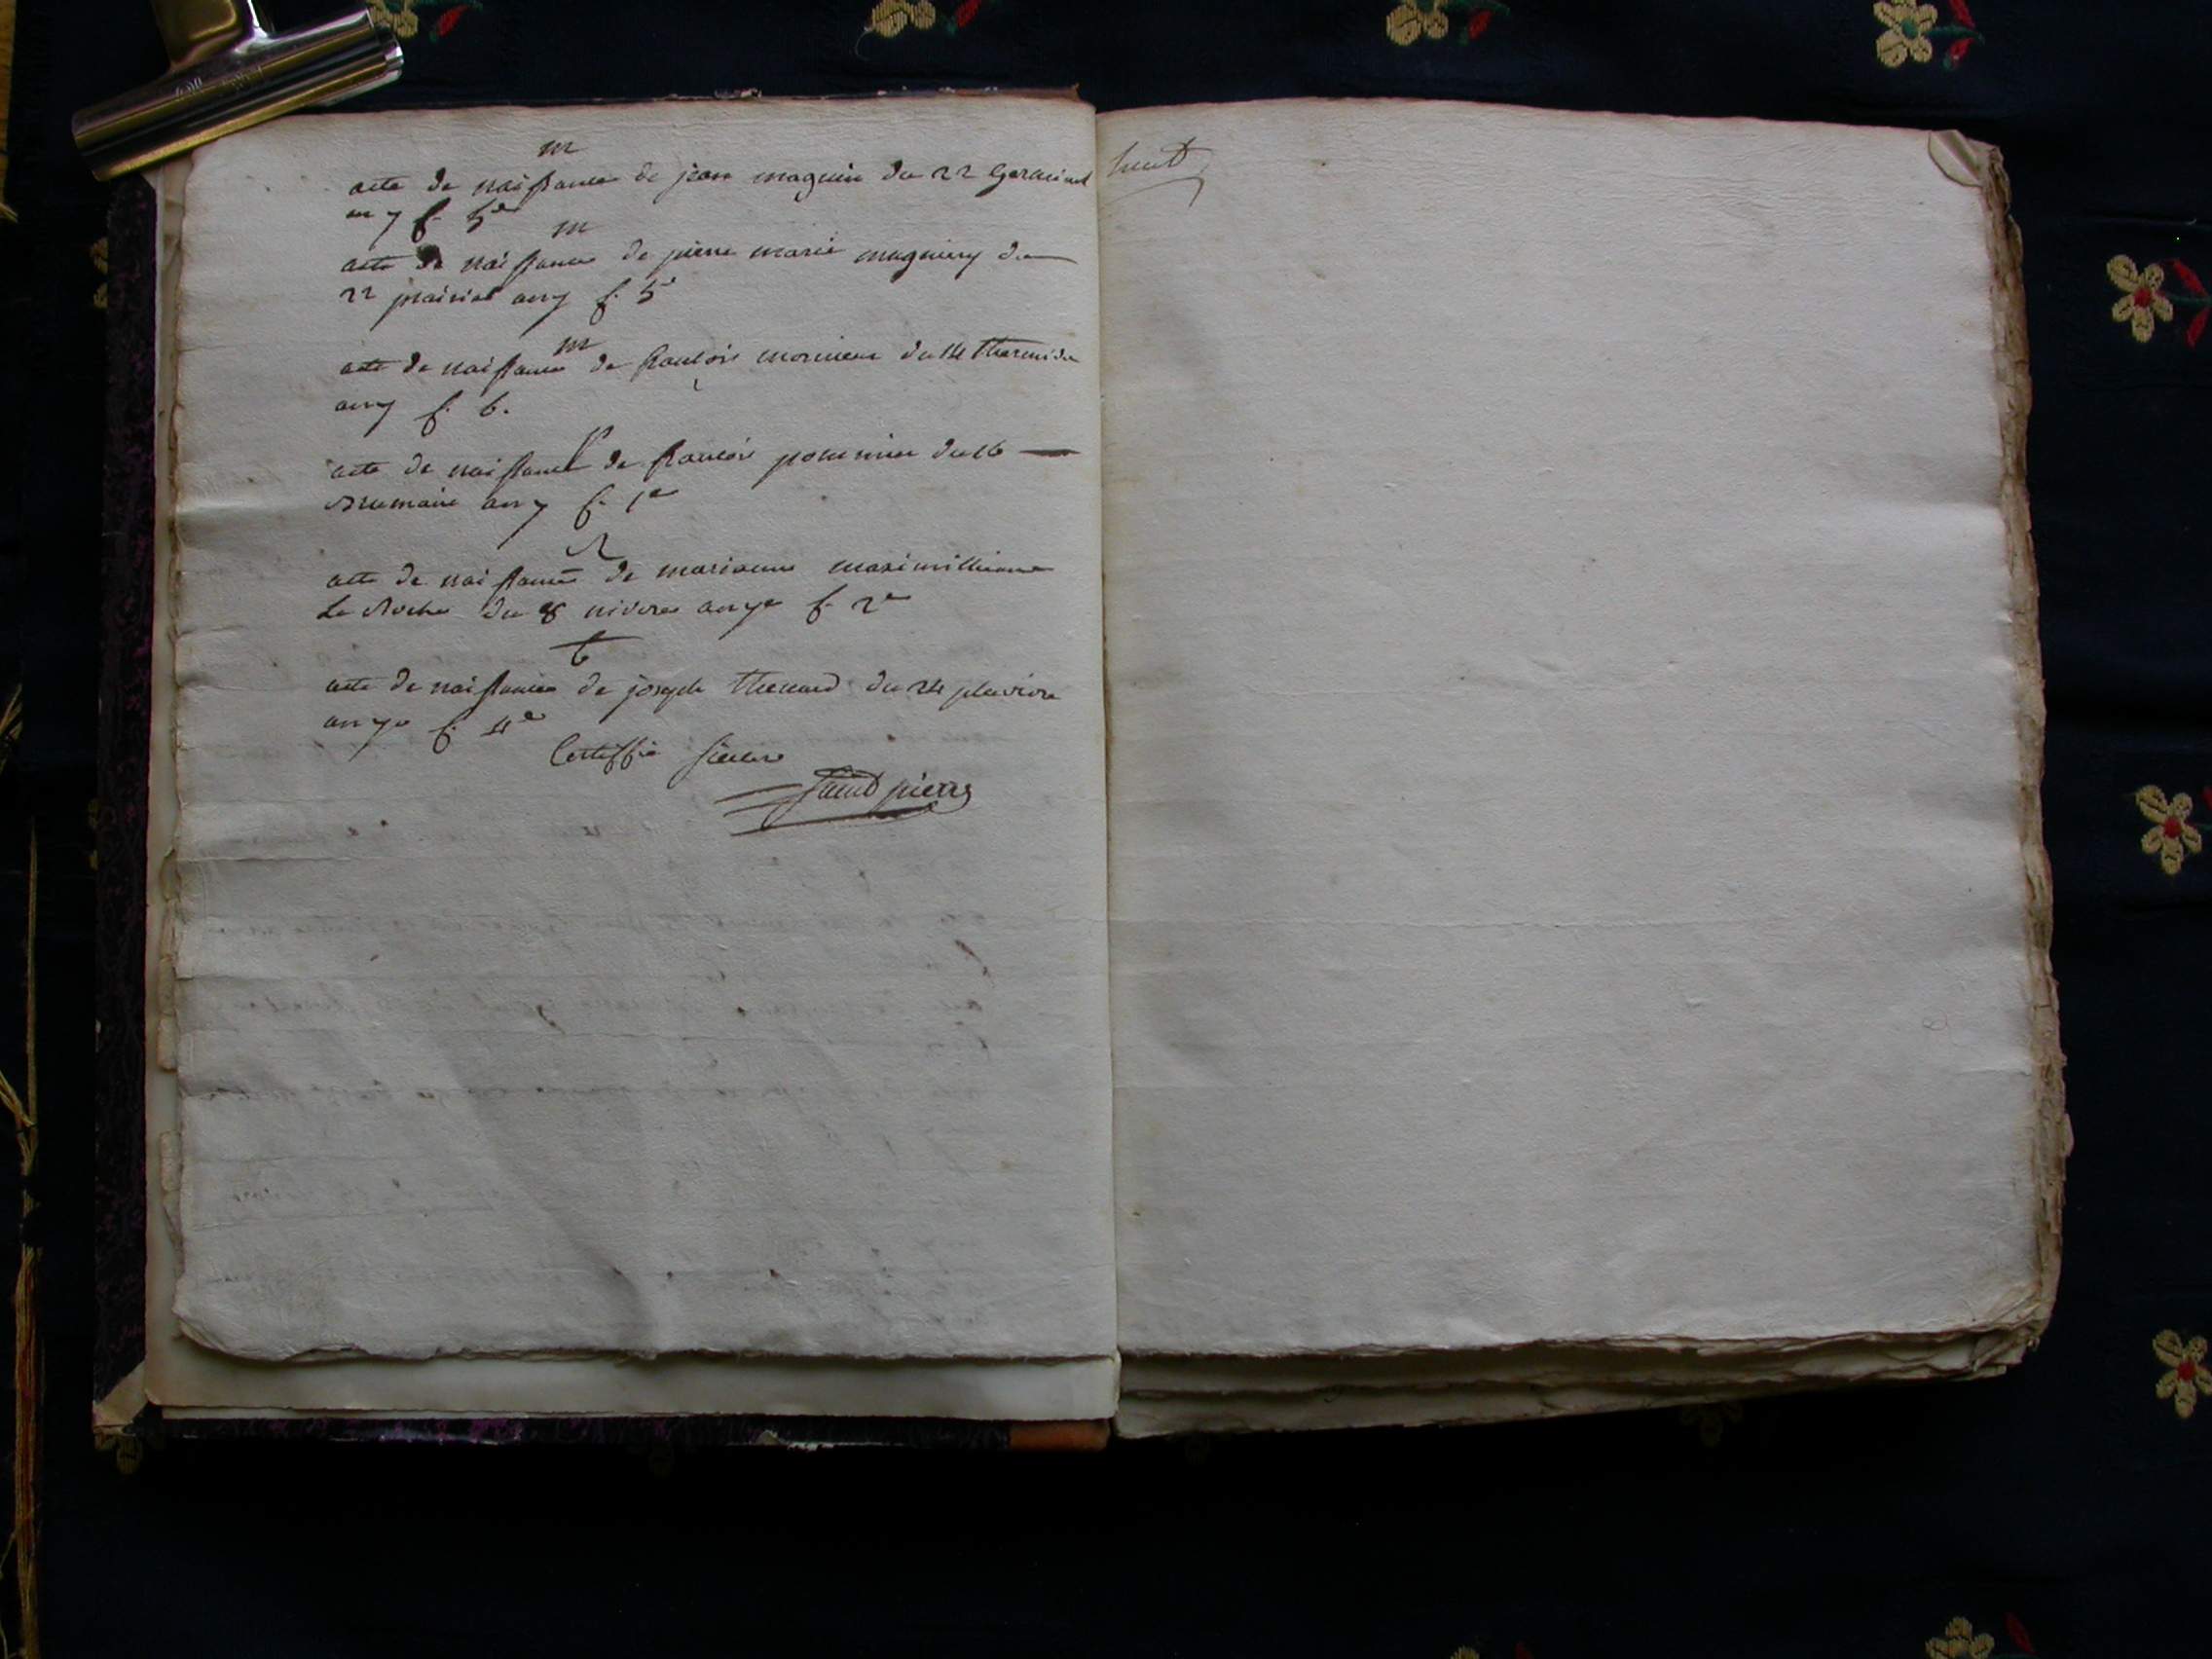 m
acte de naissance de jean magnin du 22 Germinal
an 7 f. 5e
m
acte de naissance de pierre marie magnin du
22 prairial an 7 f. 5e
m
acte de naissance de françois monnieu du 14 thermidor
an 7 f. 6.
p
acte de naissance de françois pommier du 16
Brumaire an 7 f. 1e
R
acte de naissance de marianne maximillienne
La Roche du 8 nivose an 7e f. 2e
t
acte de naissance de joseph thenard du 24 pluviose
an 7e f. 4e
Certiffié sincere
Saint pierre
huit